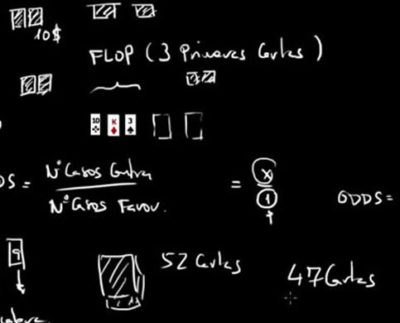 10$
FLOP (3 Primeras Cartas)
10 K 3
ODDS = Nº Casos Contra
Nº Casos Favor.
= x
1
ODDS =
9
52 Cartas
47 Cartas